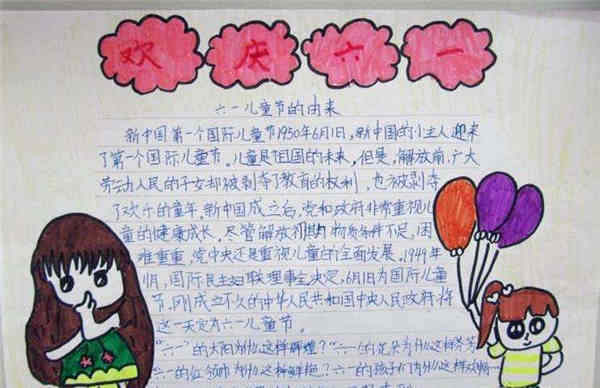 欢庆六一
六一儿童节的由来
新中国第一个国际儿童节1950年6月1日,新中国的小主人迎来
了第一个国际儿童节。儿童是祖国的未来,但是,解放前,广大
劳动人民的子女却被剥夺了教育的权利,也被剥夺
了欢乐的童年。新中国成立后,党和政府非常重视儿
童的健康成长。尽管解放初期物质条件不足,困
难重重,党中央还是重视儿童的全面发展。1949年
11月,国际民主妇联理事会决定,6月1日为国际儿童
节,刚成立不久的中华人民共和国中央人民政府将
这一天定为六一儿童节。
"六一"的太阳为什么这样辉煌?"六一"的花朵为什么这样芬芳
六一的红领巾为什么这样鲜艳?六一的孩子们为什么这样欢畅